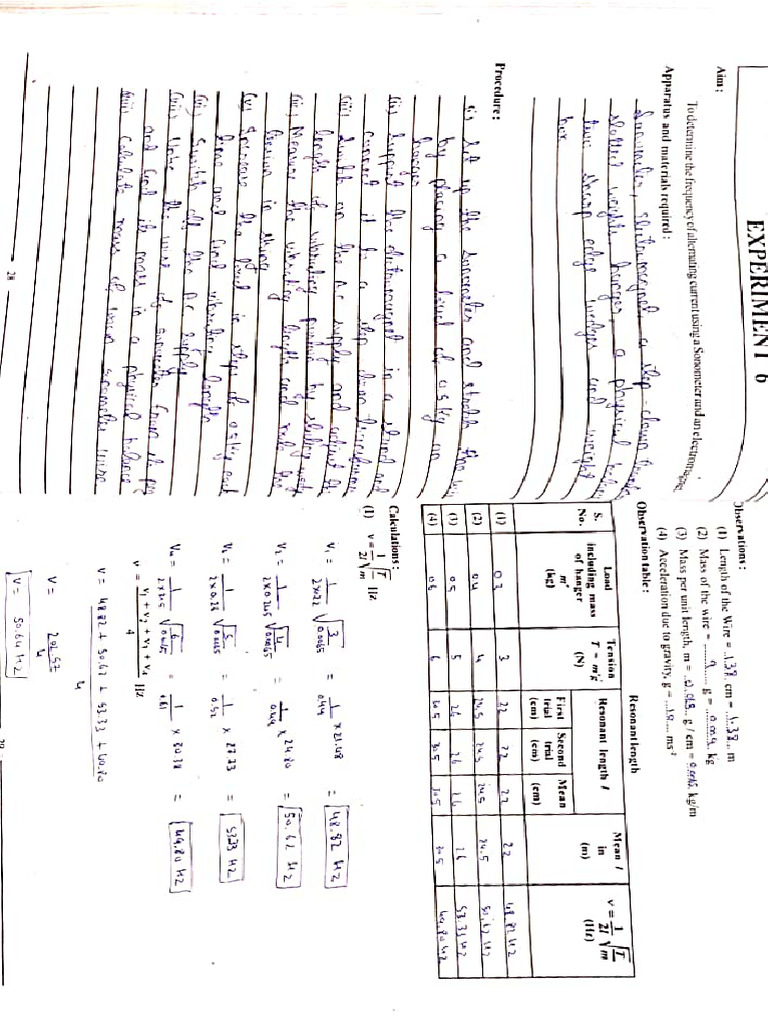 EXPERIMENT 6
Aim :
To determine the frequency of alternating current using a Sonometer and an electromagnet.
Apparatus and materials required :
Sonometer, electromagnet, a step-down
slotted weight, hanger, a physical
two sharp edge wedges and weight
box
Procedure :
(i) Set up the sonometer and stretch the
by placing a load of 0.5 kg on
hanger
(ii) Support the electromagnet in a stand and
connect it to a step down transformer
(iii) Switch on the AC supply and adjust the
length of vibrating
by sliding
(iv) Measure the vibrating length and
tension in string
(v) Increase the load in step of 0.5 kg and
time and find vibrating length
(vi) Switch off the AC supply
(vii)
the wire of sonometer from
and find its mass in a physical balance
(viii) calculate mass of
sonometer wire
28
Observations :
(1) Length of the Wire = 138 cm = 1.38 m
(2) Mass of the wire = 9 g = 0.009 kg
(3) Mass per unit length, m = g / cm = kg/m
(4) Acceleration due to gravity, g = 10 ms²
Observation table :
Resonant length
S. No. | Load including mass of hanger m' (kg) | Tension T = m'g (N) | Resonant length l First trial (cm) | Second trial (cm) | Mean (cm) | Mean l in (m) | v = 1/2l √T/m (Hz)
(1) 0.3 3 22 22 22 22 48.82 HZ
(2) 0.4 4 24.5 24.5 24.5 24.5 50.62 HZ
(3) 0.5 5 26 26 26 26 53.33 HZ
(4) 0.6 6 30.5 30.5 30.5 30.5 49.80 HZ
Calculations :
(1) v = 1/2l √T/m Hz
V₁ = 1/2×0.22 √3/0.0065 = 1/0.44 × 21.48 = 48.82 HZ
V₂ = 1/2×0.245 √4/0.0065 = 1/0.49 × 24.80 = 50.62 HZ
V₃ = 1/2×0.26 √5/0.0065 = 1/0.52 × 27.73 = 53.33 HZ
V₄ = √6/0.0065 = × 30.38 = 49.80 HZ
v = v₁ + v₂ + v₃ + v₄ / 4 Hz
V = 48.82 + 50.62 + 53.33 + 49.80 / 4
V = 202.57 / 4
V = 50.64 HZ
29